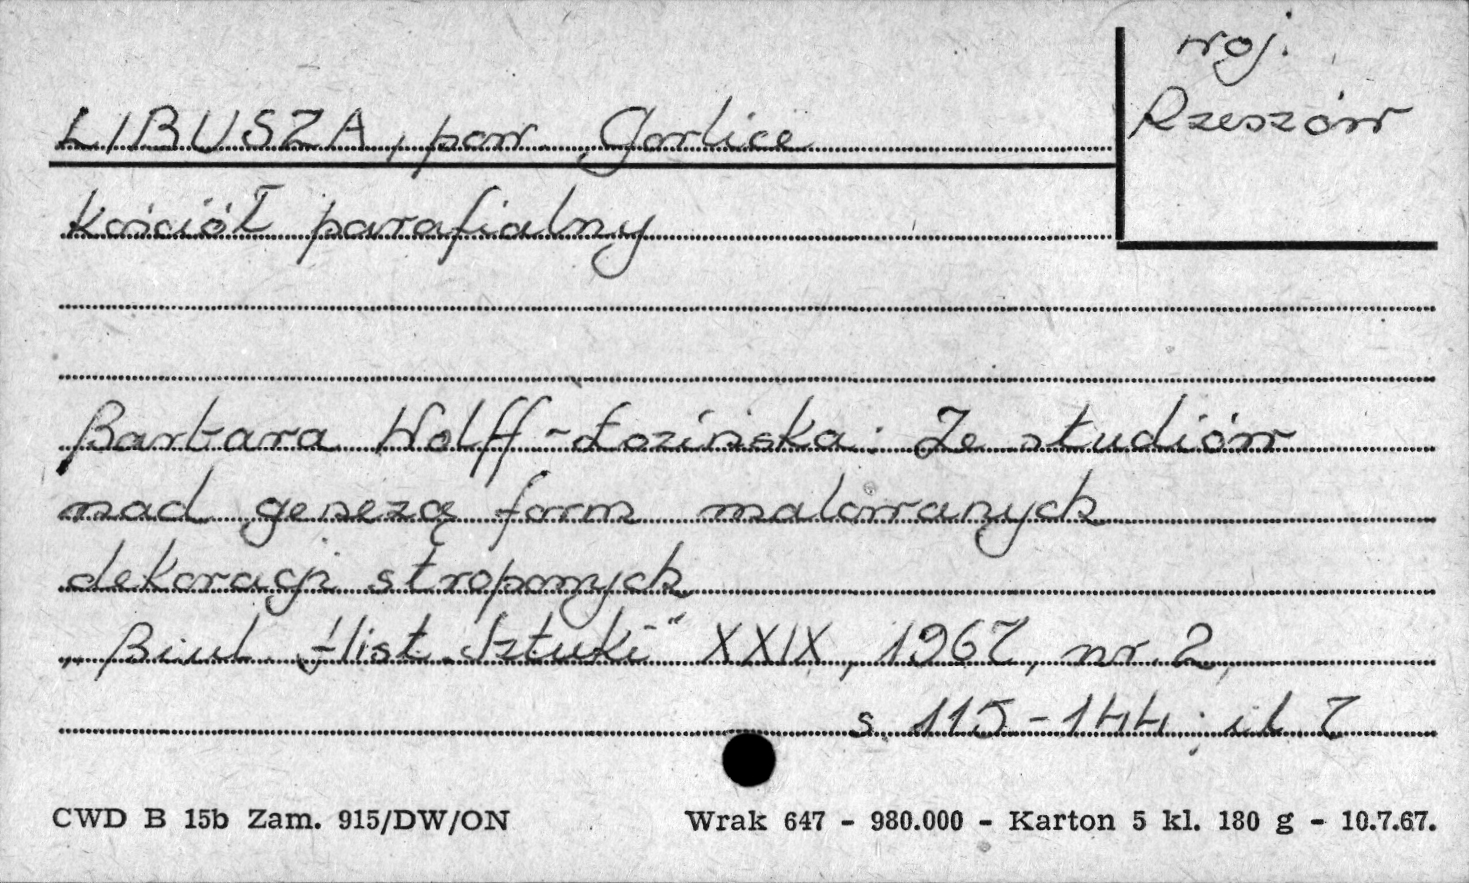 woj.
Rzeszów
LIBUSZA, pow. Gorlice
Kościół parafialny
Barbara Wolff-Łozińska: Ze studiów
nad genezą form malowanych
dekoracji stropowych
„Biul. Hist. Sztuki" XXIX, 1967, nr. 2,
s. 115-144; il. 7
CWD B 15b Zam. 915/DW/ON Wrak 647 - 980.000 - Karton 5 kl. 180 g - 10.7.67.